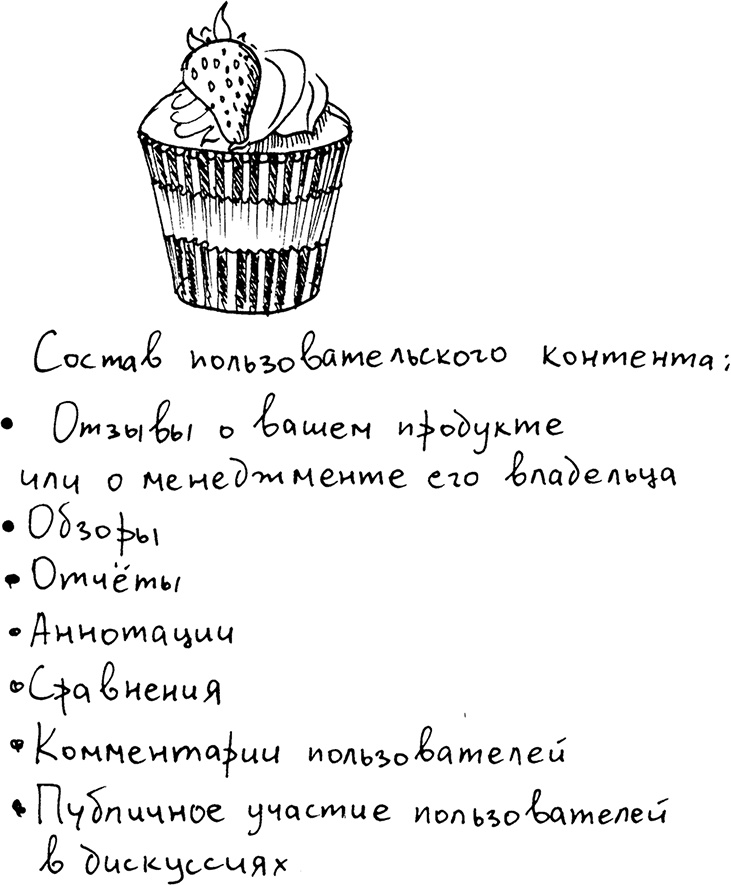 Состав пользовательского контента:
• Отзывы о вашем продукте
или о менеджменте его владельца
• Обзоры
• Отчёты
• Аннотации
• Сравнения
• Комментарии пользователей
• Публичное участие пользователей
в дискуссиях